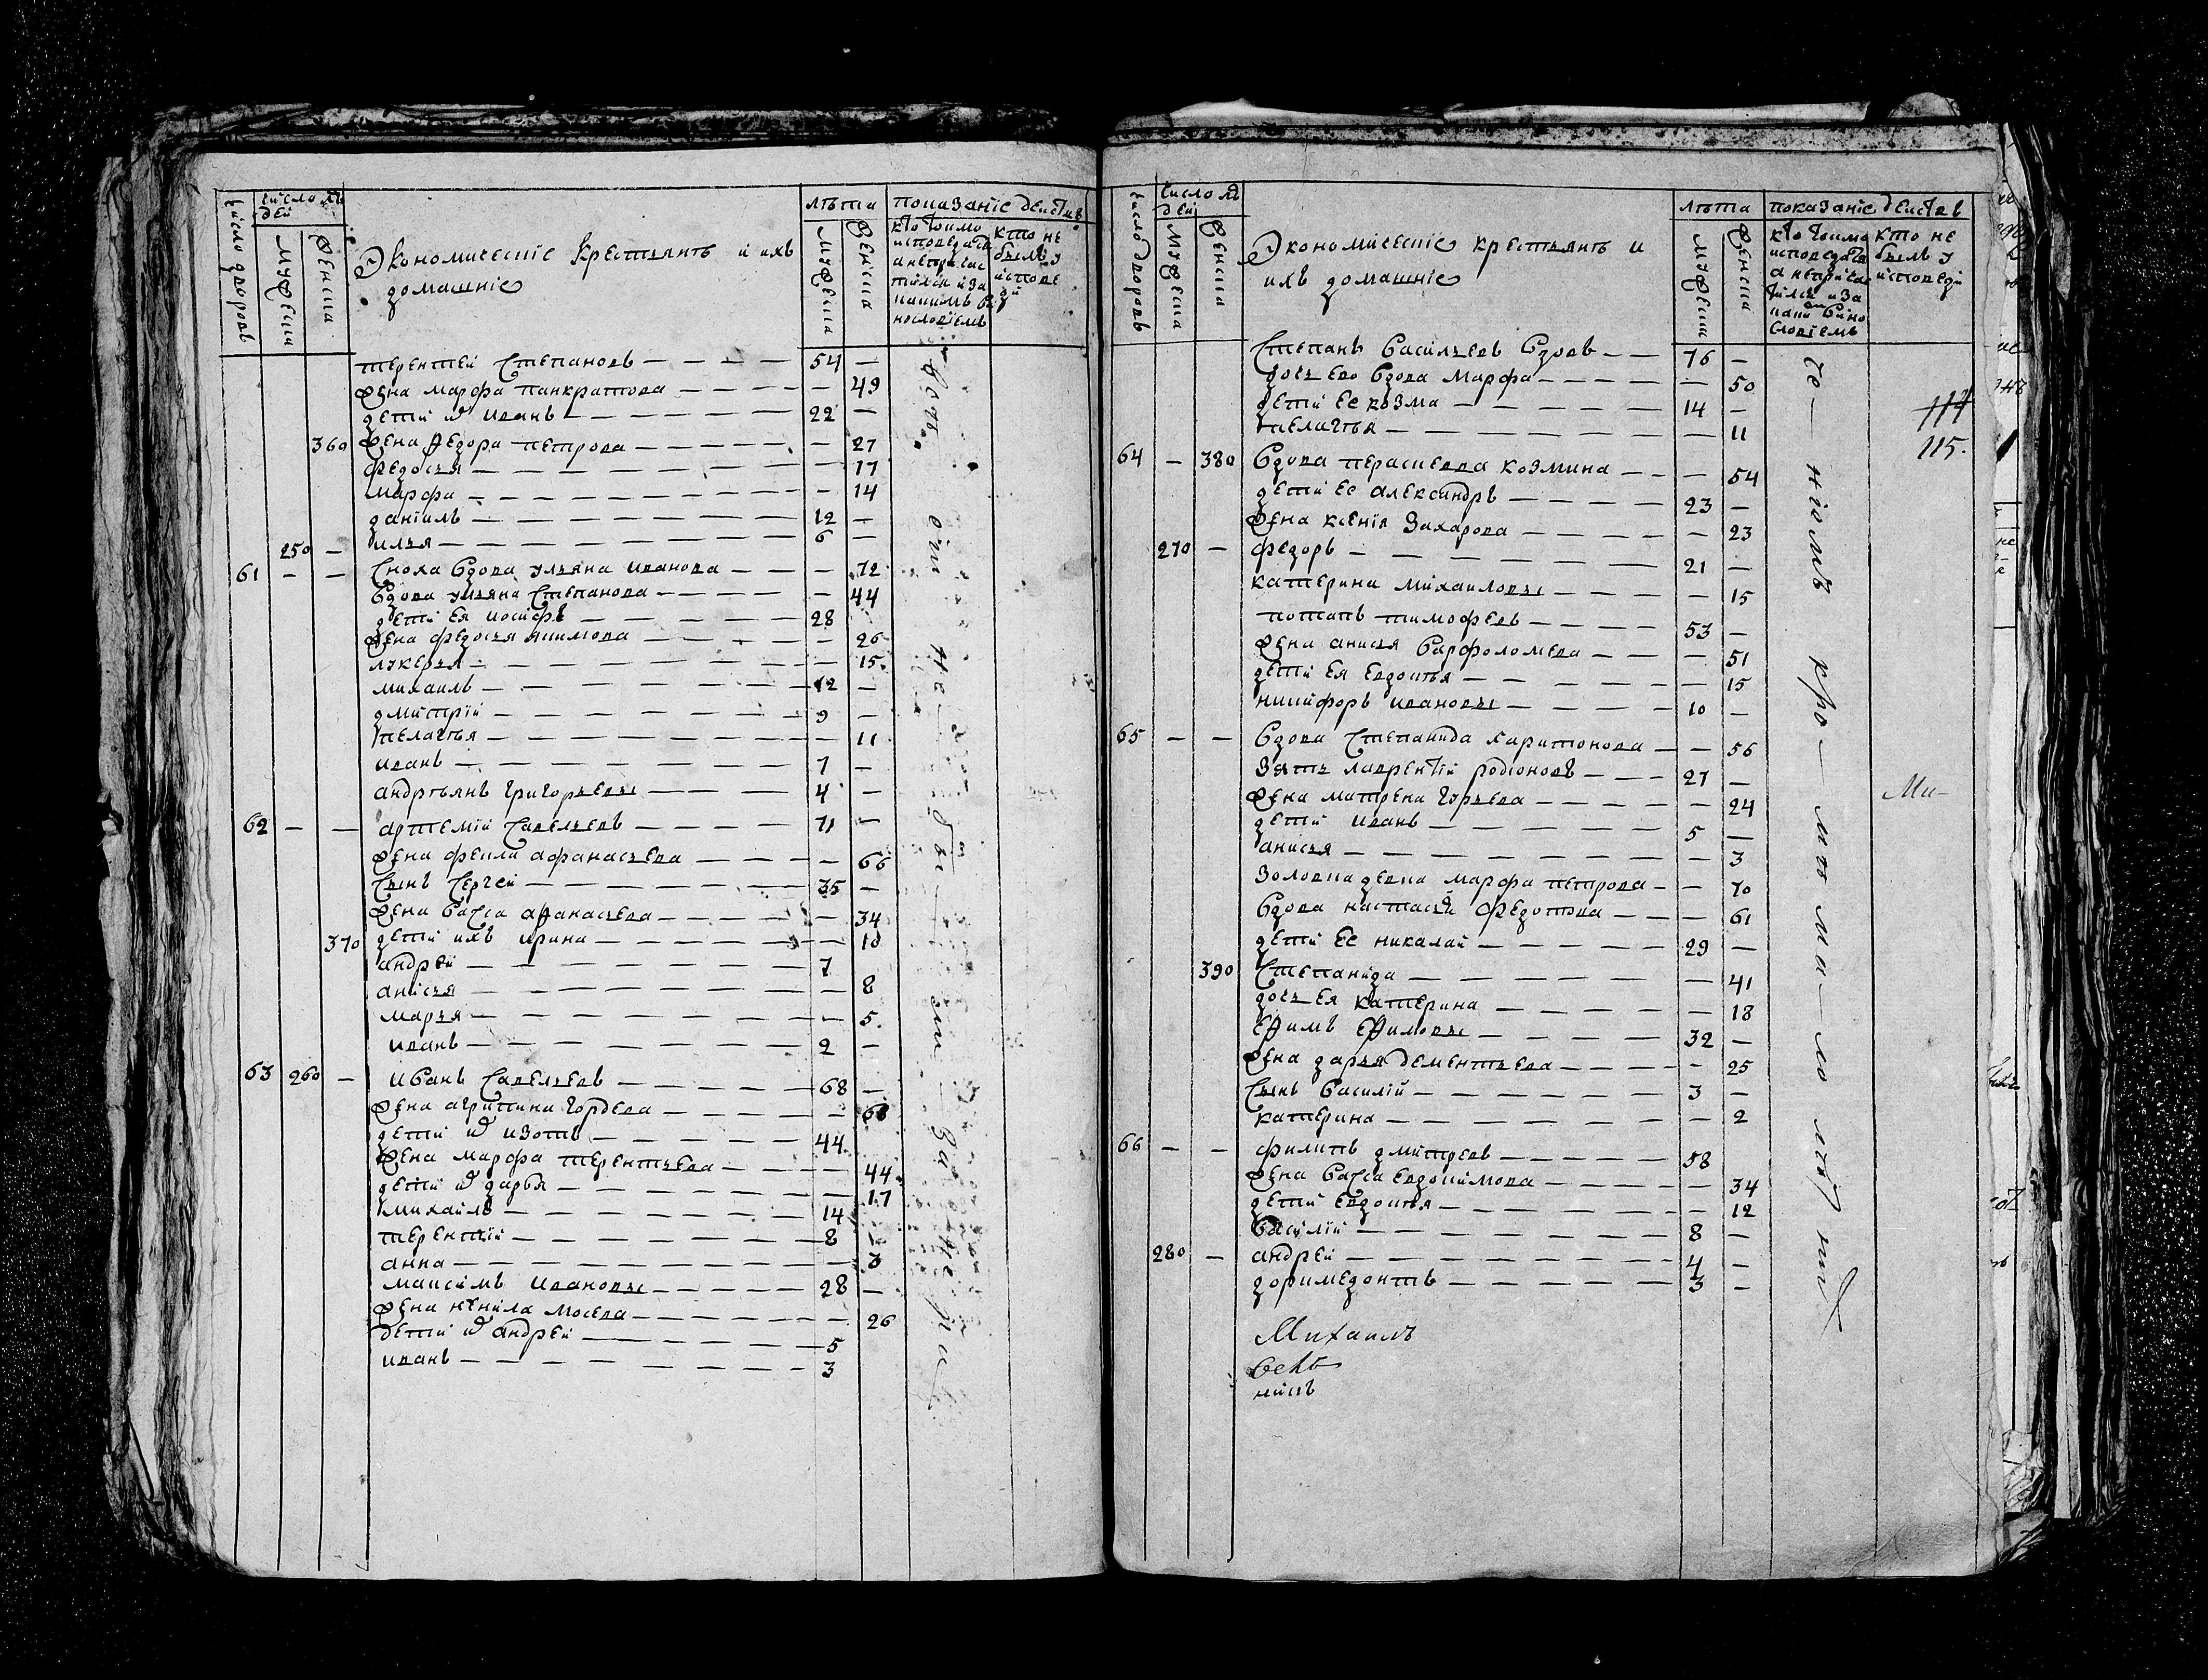 число дворовъ
число лю
дей
мужеска
женска
Экономическïе крестьянъ и ихъ
домашнïе
лѣта
мужеска
женска
показанïе действ
кто токмо
исповедался
а непричас
тился и за
какимъ ви
нословïемъ
кто не
былъ у
исповеди
терентей степановъ — 54 —
жена марфа панкратова — — 49
дети и иванъ — 22 —
360 жена федора петрова — — 27
федосья — — 17
марфа — — 14
данïилъ — 12 —
илья — 6 —
250 —
61 — — сноха вдова ульяна иванова — — 72
вдова ульяна степанова — — 44
дети ея иосифъ — 28
жена федосья якимова — — 26
лукерья — — 15
михаилъ — 12 —
дмитрïй — 9 —
пелагѣя — — 11
иванъ — 7 —
андрѣянъ григорьевъ — 4 —
62 — — артемïй савельевъ — 71 —
жена фекла афанасьева — — 66
сынъ сергей — 35 —
жена васса афанасьева — — 34
370 дети ихъ ирина — — 10
андрей — 7
анисья — — 8
марья — — 5
иванъ — 2 —
63 260 — иванъ савельевъ — 68 —
жена агрипина гордева — — 68
дети и изотъ — 44
жена марфа терентьева — — 44
дети и дарья — — 17
михайлъ — 14
терентïй — 8
анна — — 3
максимъ ивановъ — 28 —
жена ненила мосева — — 26
дети и андрей — 5
иванъ — 3
число дворовъ
число лю
дей
мужеска
женска
Экономическïе крестьянъ и
ихъ домашнïе
лѣта
мужеска
женска
показанïе действ
кто токмо
исповедался
а непричас
тился и за
каки ви но
словïемъ
кто не
былъ у
исповеди
степанъ васильевъ вдовъ — 76 —
дочь ево вдова марфа — — 50
дети ее козма — 14 —
пелагѣя — — 11
115.
64 — 380 вдова перасковва козмина — — 54
дети ее александръ — 23 —
жена ксенïя захарова — — 23
270 — федоръ — 21 —
катерина михаиловы — — 15
потапъ тимофевъ — 53 —
жена анисья варфоломева — — 51
дети ея евдокѣя — — 15
никифоръ ивановы — 10 —
65 — — вдова степанида харитонова — — 56
зять лаврентïй родïоновъ — 27 —
жена матрена гурьева — — 24
дети иванъ — 5 —
анисья — — 3
Ми-
золовка девка марфа петрова — — 70
вдова настасья федотова — — 61
дети ее николай — 29 —
390 степанида — — 41
дочь ея катерина — — 18
ефимъ ефимовъ — 32 —
жена дарья дементьева — — 25
сынъ василïй — 3 —
катерина — — 2
66 — — филипъ дмитревъ — 58
жена васса евдокимова — — 34
дети евдокѣя — — 12
василïй — 8 —
280 — андрей — 4 —
доримедонтъ — 3 —
Михаилъ